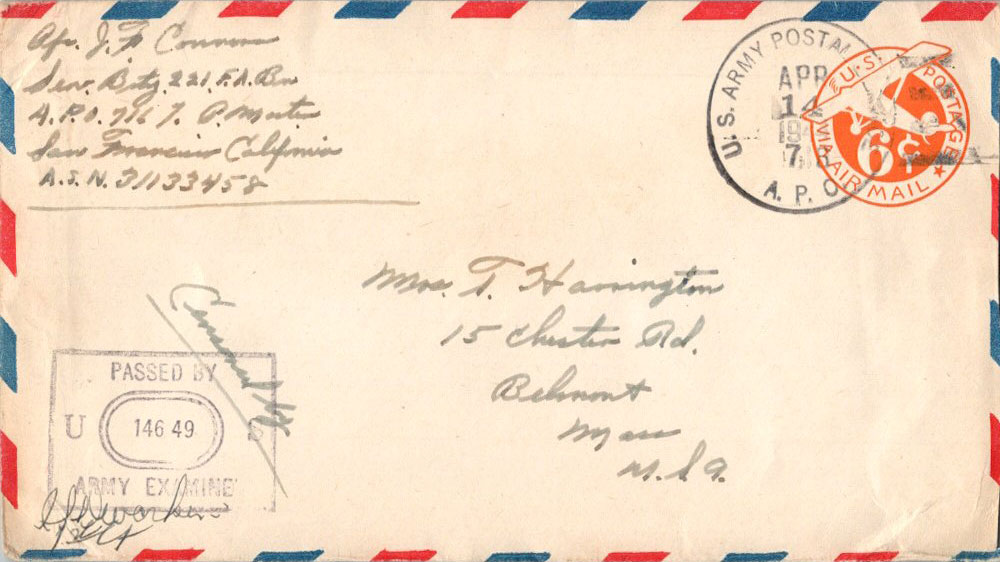 J. F. Connors
Serv. Bty. 221 F.A. Bn
A.P.O. 7167. P. Master
San Francisco California
A.S.N. 31133458
U.S. ARMY POSTAL
APR
14
194
A.P.O.
U.S. POSTAGE
6¢
VIA AIR MAIL
Mrs. T. Harrington
15 Chester Rd.
Belmont
Mass
U.S.A.
Censored
PASSED BY
U 146 49 S
ARMY EXAMINE
1st Lt